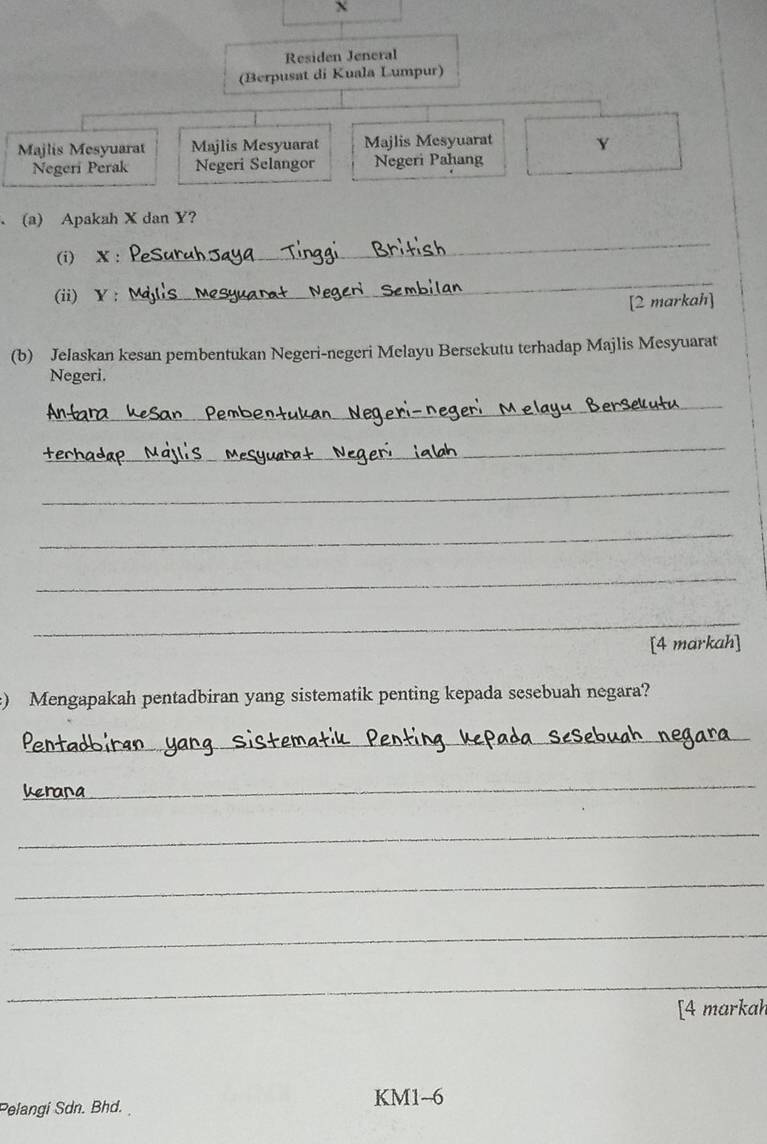 X
Residen Jeneral
(Berpusat di Kuala Lumpur)
Majlis Mesyuarat
Negeri Perak
Majlis Mesyuarat
Negeri Selangor
Majlis Mesyuarat
Negeri Pahang
Y
(a) Apakah X dan Y?
(i) X : Pesuruhjaya Tinggi British
(ii) Y : Majlis Mesyuarat Negeri Sembilan
[2 markah]
(b) Jelaskan kesan pembentukan Negeri-negeri Melayu Bersekutu terhadap Majlis Mesyuarat
Negeri.
Antara kesan Pembentukan Negeri-negeri Melayu Bersekutu
terhadap Majlis Mesyuarat Negeri ialah
[4 markah]
) Mengapakah pentadbiran yang sistematik penting kepada sesebuah negara?
Pentadbiran yang sistematik Penting kepada sesebuah negara
kerana
[4 markah
Pelangi Sdn. Bhd.
KM1-6